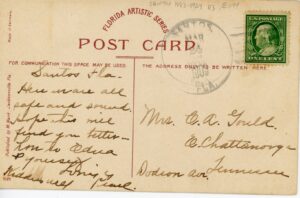 FLORIDA ARTISTIC SERIES
POST CARD.
FOR COMMUNICATION THIS SPACE MAY BE USED
THE ADDRESS ONLY TO BE WRITTEN HERE
U.S. POSTAGE
ONE CENT
SANTOS
MAR
FLA.
Santos Fla.
Here we are all
safe and sound.
hope this will
find you better
love to Edna
& yourself
Mrs. C. A. Gould
E. Chattanooga
Dodson Ave. Tennessee